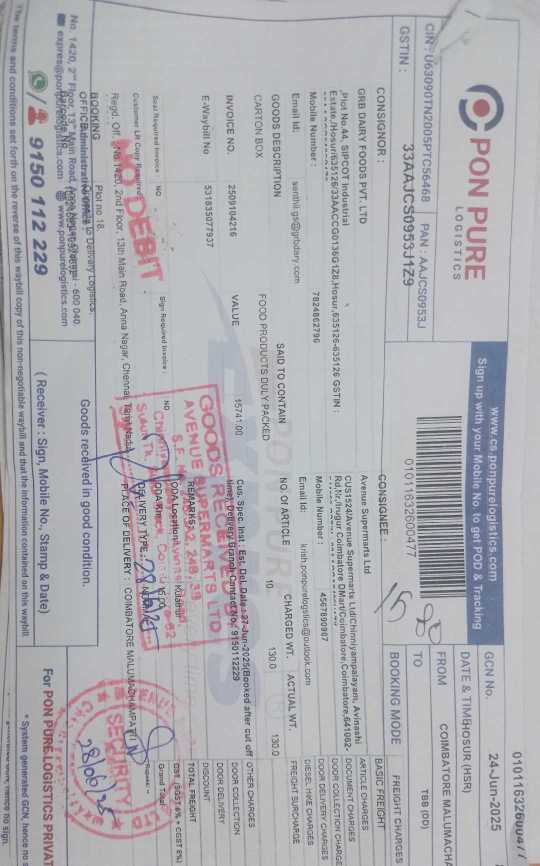 PON PURE
LOGISTICS
www.cs.ponpurelogistics.com
Sign up with your Mobile No. to get POD & Tracking
CIN : U63090TN2005PTC56468 PAN : AAJCS0953J
GSTIN : 33AAJCS0953J1Z9
010116326000477
GCN No.
24-Jun-2025
DATE & TIME
HOSUR (HSR)
FROM
COIMBATORE MALUMACHA
TO
TBB (00)
BOOKING MODE
FREIGHT CHARGES
CONSIGNOR :
GRB DAIRY FOODS PVT. LTD
Plot No.44, SIPCOT Industrial
Estate,Hosur/635126/33AACCG0136G1Z8),Hosur,635126-635126 GSTIN :
Mobile Number : 7824862796
Email Id: senthil.gs@grbdairy.com
CONSIGNEE :
1520
Avenue Supermarts Ltd
CUS1524/Avenue Supermarts Ltd/Chinniyampalayam, Avinashi
Rd,Nr,Irugur Coimbatore DMart/Coimbatore,Coimbatore,641062-
Mobile Number : 4567890987
Email Id: krish.ponpurelogistics@outlook.com
GOODS DESCRIPTION
SAID TO CONTAIN
NO. OF ARTICLE
CHARGED WT.
ACTUAL WT.
CARTON BOX
FOOD PRODUCTS DULY PACKED
10
130.0
130.0
INVOICE NO. 2509104216
VALUE 15741.00
E-Waybill No 531835077937
Cus. Spec. Inst : Est. Del. Date : 27-Jun-2025(Booked after cut off
time), Delivery Branch Contact No: 9150112229
REMARKS :
ODA Location :
DELIVERY TYPE :
PLACE OF DELIVERY : COIMBATORE MALUMACHAMPATTI
BASIC FREIGHT
ARTICLE CHARGES
DOCUMENT CHARGES
DOOR COLLECTION CHARGE
DOOR DELIVERY CHARGES
DIESEL HIKE CHARGES
FREIGHT SURCHARGE
OTHER CHARGES
DOOR COLLECTION
DOOR DELIVERY
DISCOUNT
TOTAL FREIGHT
GST (SGST 6% + CGST 6%)
Grand Total
Seal Required Invoice : NO
Sign Required Invoice : NO
Customer LR Copy Required
DEBIT
GOODS RECEIVED
AVENUE SUPERMARTS LTD
28/6/25
SECURITY
28/06/25
Regd. Off. : No.1420, 2nd Floor, 13th Main Road, Anna Nagar, Chennai, Tamil Nadu
BOOKING
OFFICE
Plot no 18,
No. 1420, 2nd Floor, 13th Main Road, Anna Nagar, Chennai - 600 040.
www.ponpurelogistics.com
9150 112 229
Goods received in good condition.
( Receiver : Sign, Mobile No., Stamp & Date)
For PON PURE LOGISTICS PRIVAT
* System generated GCN, hence no s
The terms and conditions set forth on the reverse of this waybill copy of this non-negotiable waybill and that the information contained on this waybill